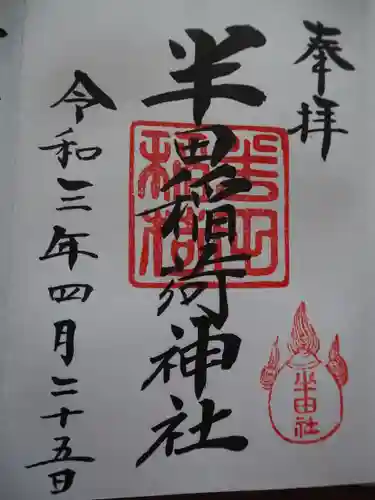 奉拝
半田稲荷神社
令和三年四月二十五日
半田社